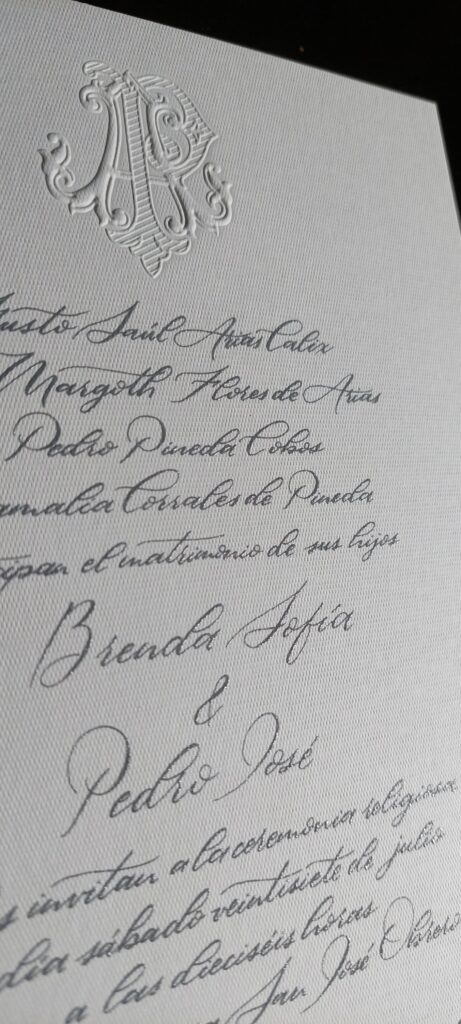 AP
usto Saúl Arias Calix
Margoth Flores de Arias
Pedro Pineda Cobos
amalia Corrales de Pineda
cipan el matrimonio de sus hijos
Brenda Sofía
&
Pedro José
s invitan a la ceremonia religiosa
día sábado veintisiete de julio
a las dieciséis horas
a San José Obrero